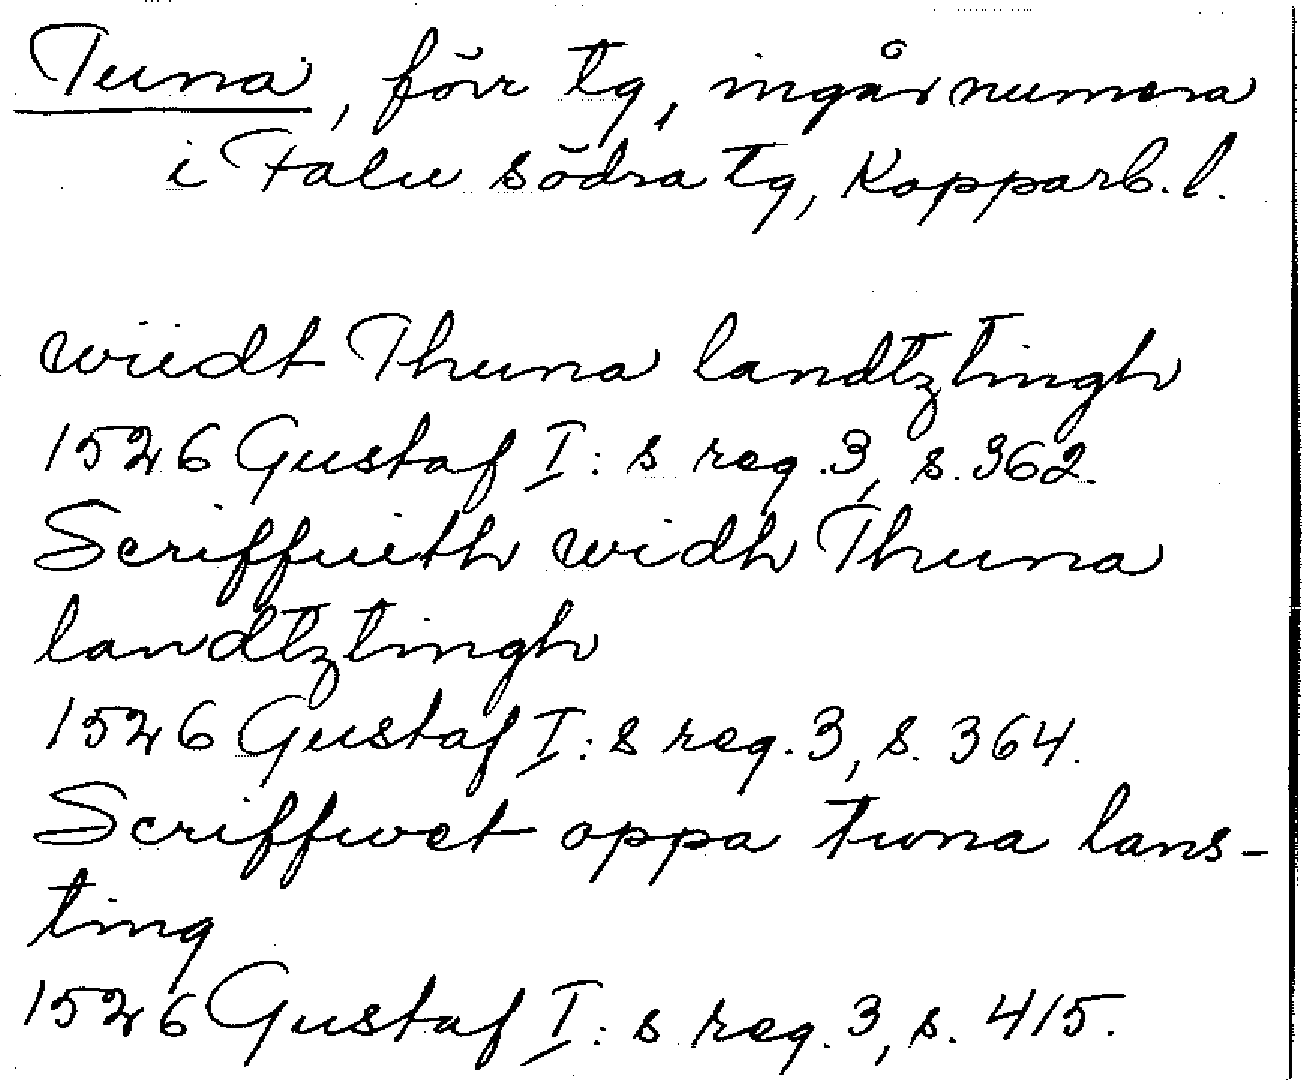 Tuna, förr tg, ingår numera
i Falu södra tg, Kopparb. l.
wiidt Thuna landtztingh
1526 Gustaf I:s reg. 3, s. 362.
Scriffuith widh Thuna
landtztingh
1526 Gustaf I:s reg. 3, s. 364.
Scriffwet oppa twna lans-
ting
1526 Gustaf I:s reg. 3, s. 415.